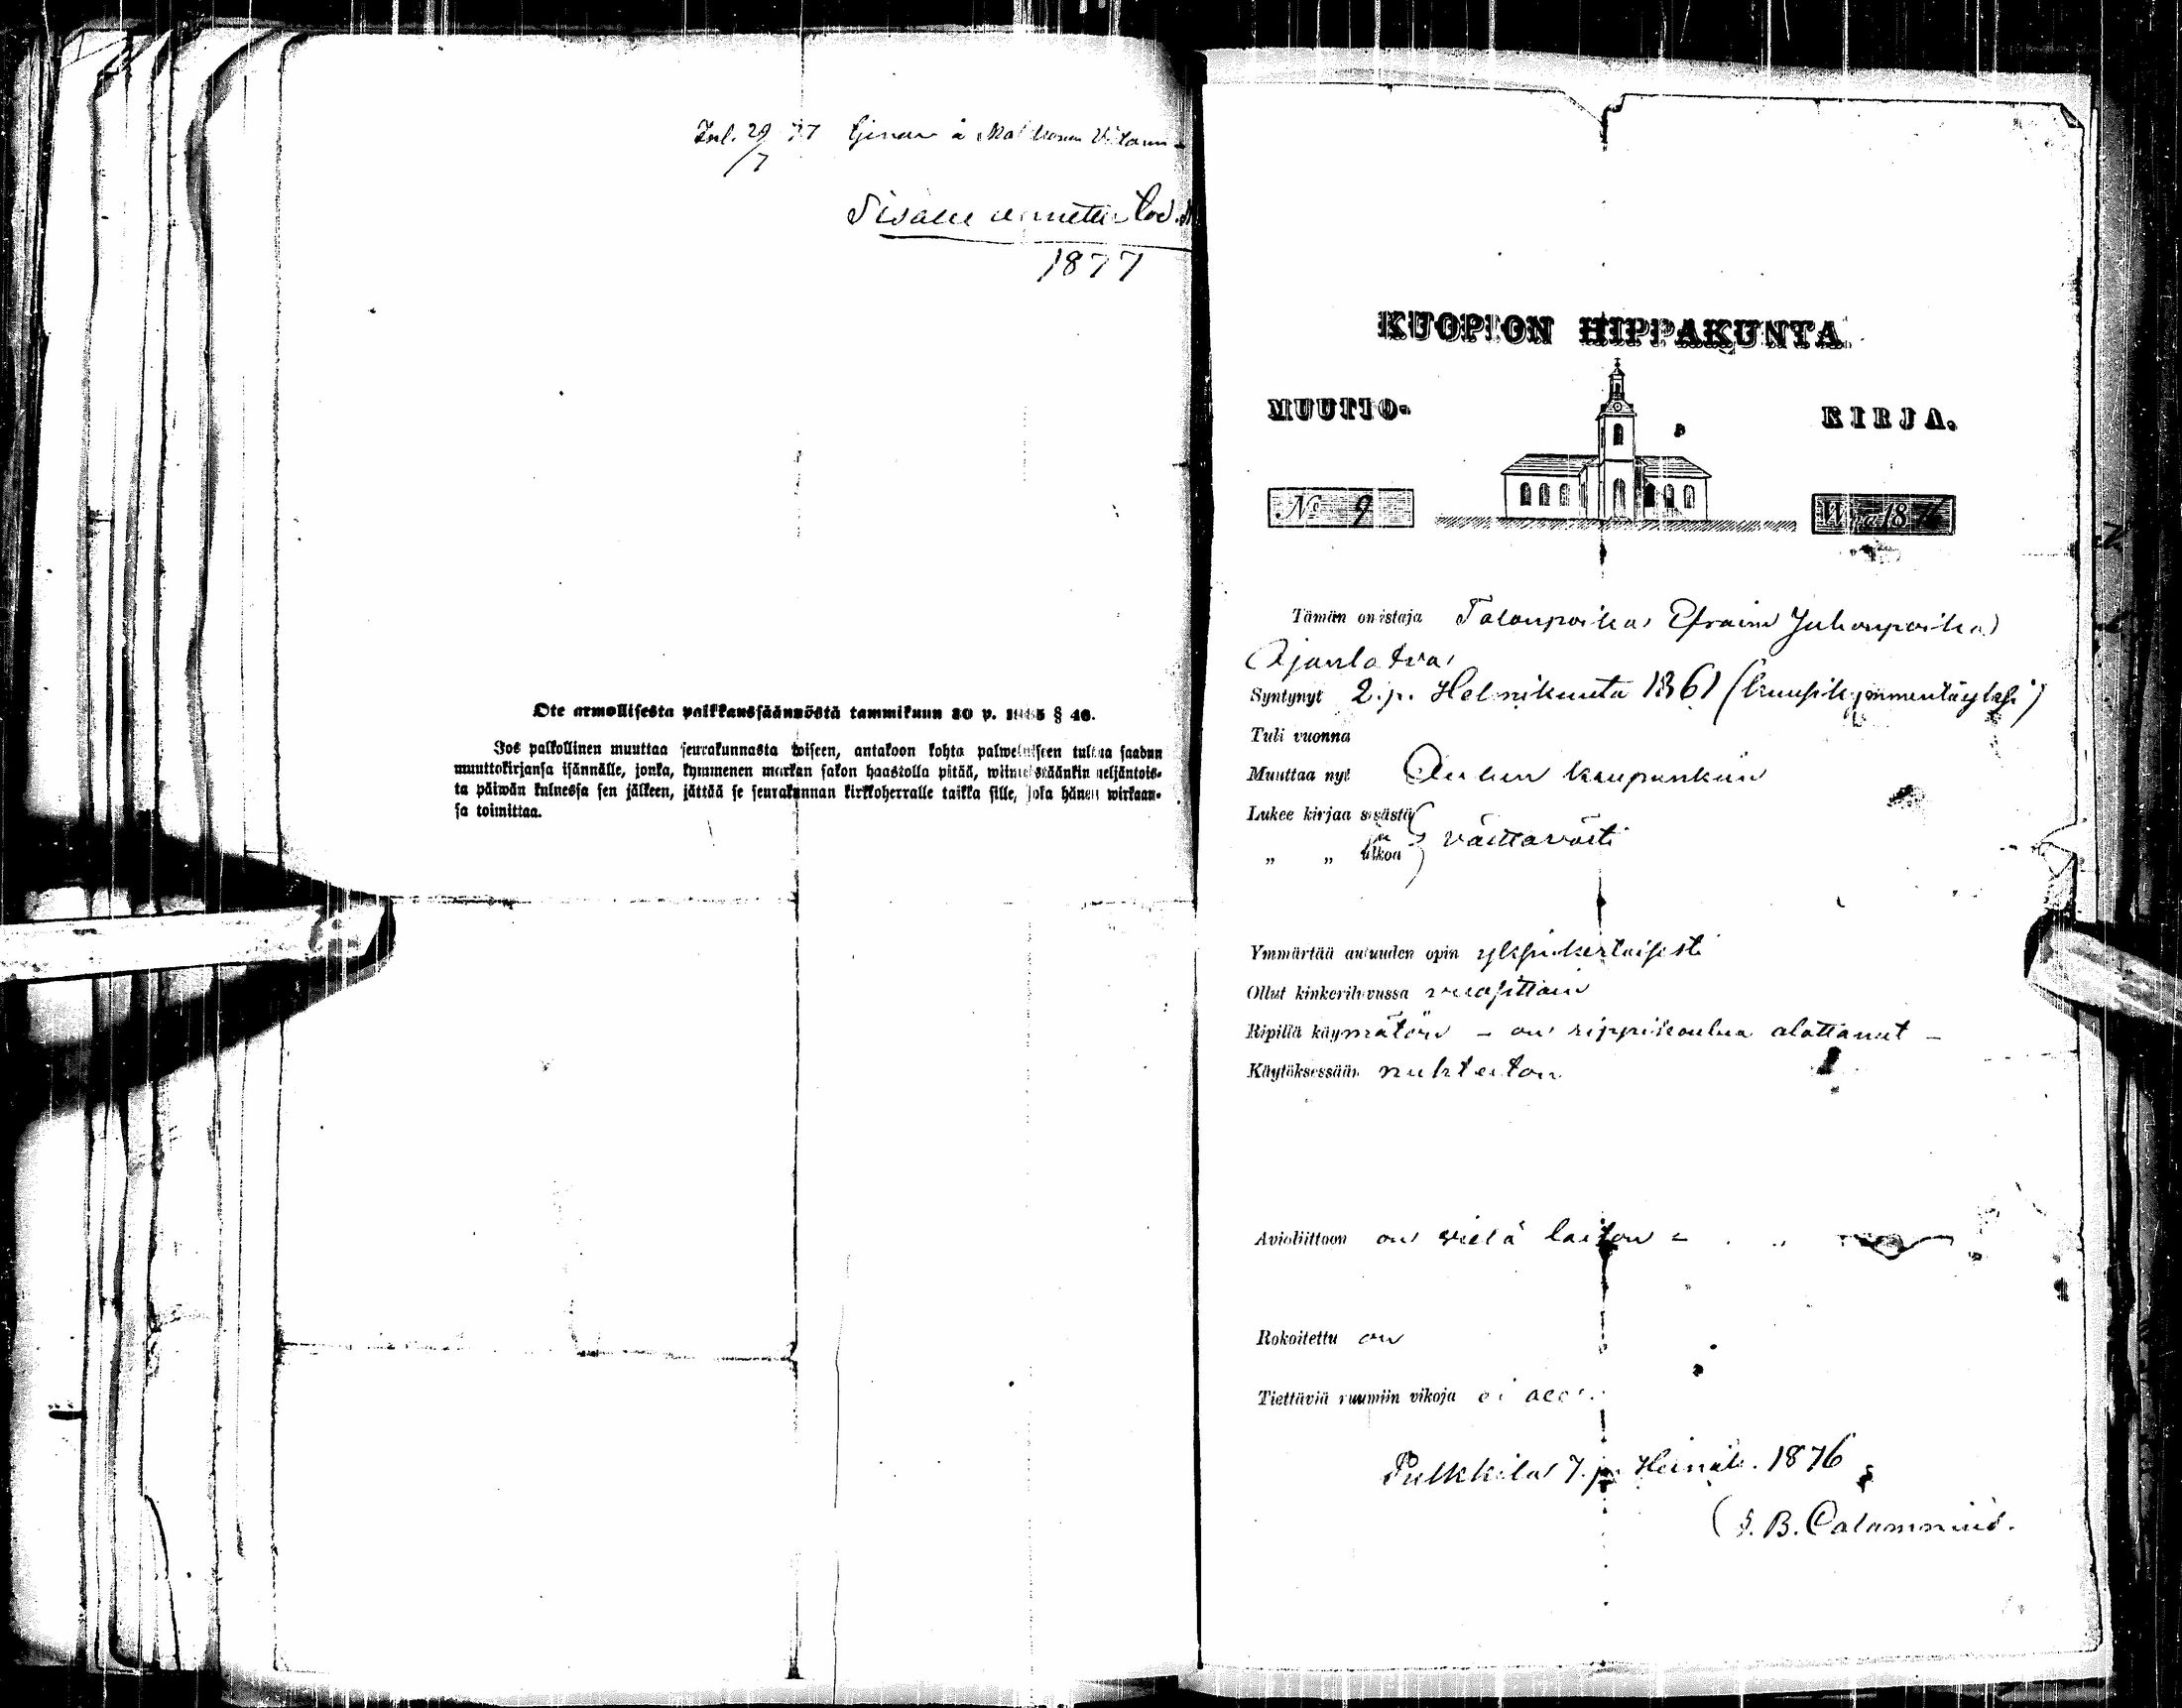 Inl. 29/7 77
Sisälle annettu
1877
Ote armollisesta palkkaussäännöstä tammikuun 30 p. 1865 § 46.
Jos palkollinen muuttaa seurakunnasta toiseen, antakoon kohta palwelukseen tultua saadun
muuttokirjansa isännälle, jonka, kymmenen markan sakon haastolla pitää, wiimeistäänkin neljäntois-
ta päiwän kuluessa sen jälkeen, jättää se seurakunnan kirkkoherralle taikka sille, joka hänen wirkaan-
sa toimittaa.
KUOPION HIPPAKUNTA.
MUUTTO- KIRJA.
No 9 Wna 1876
Tämän omistaja Talonpoika Efraim Juhonpoika
Ojanlatva
Syntynyt 2. p. Helmikuuta 1861 (kuusikymmentäyksi)
Tuli vuonna
Muuttaa nyt Oulun kaupunkiin
Lukee kirjaa sisästä
ja välttävästi
„ „ ulkoa
Ymmärtää autuuden opin yksinkertaisesti
Ollut kinkeriluvussa vuosittain
Ripillä käymätön – on rippikoulua alottanut –
Käytöksessään nuhteeton
Avioliittoon on vielä laiton
Rokoitettu on
Tiettäviä ruumiin vikoja ei ole
Pulkkila 7. p. Heinäk. 1876
B. Calamnius.